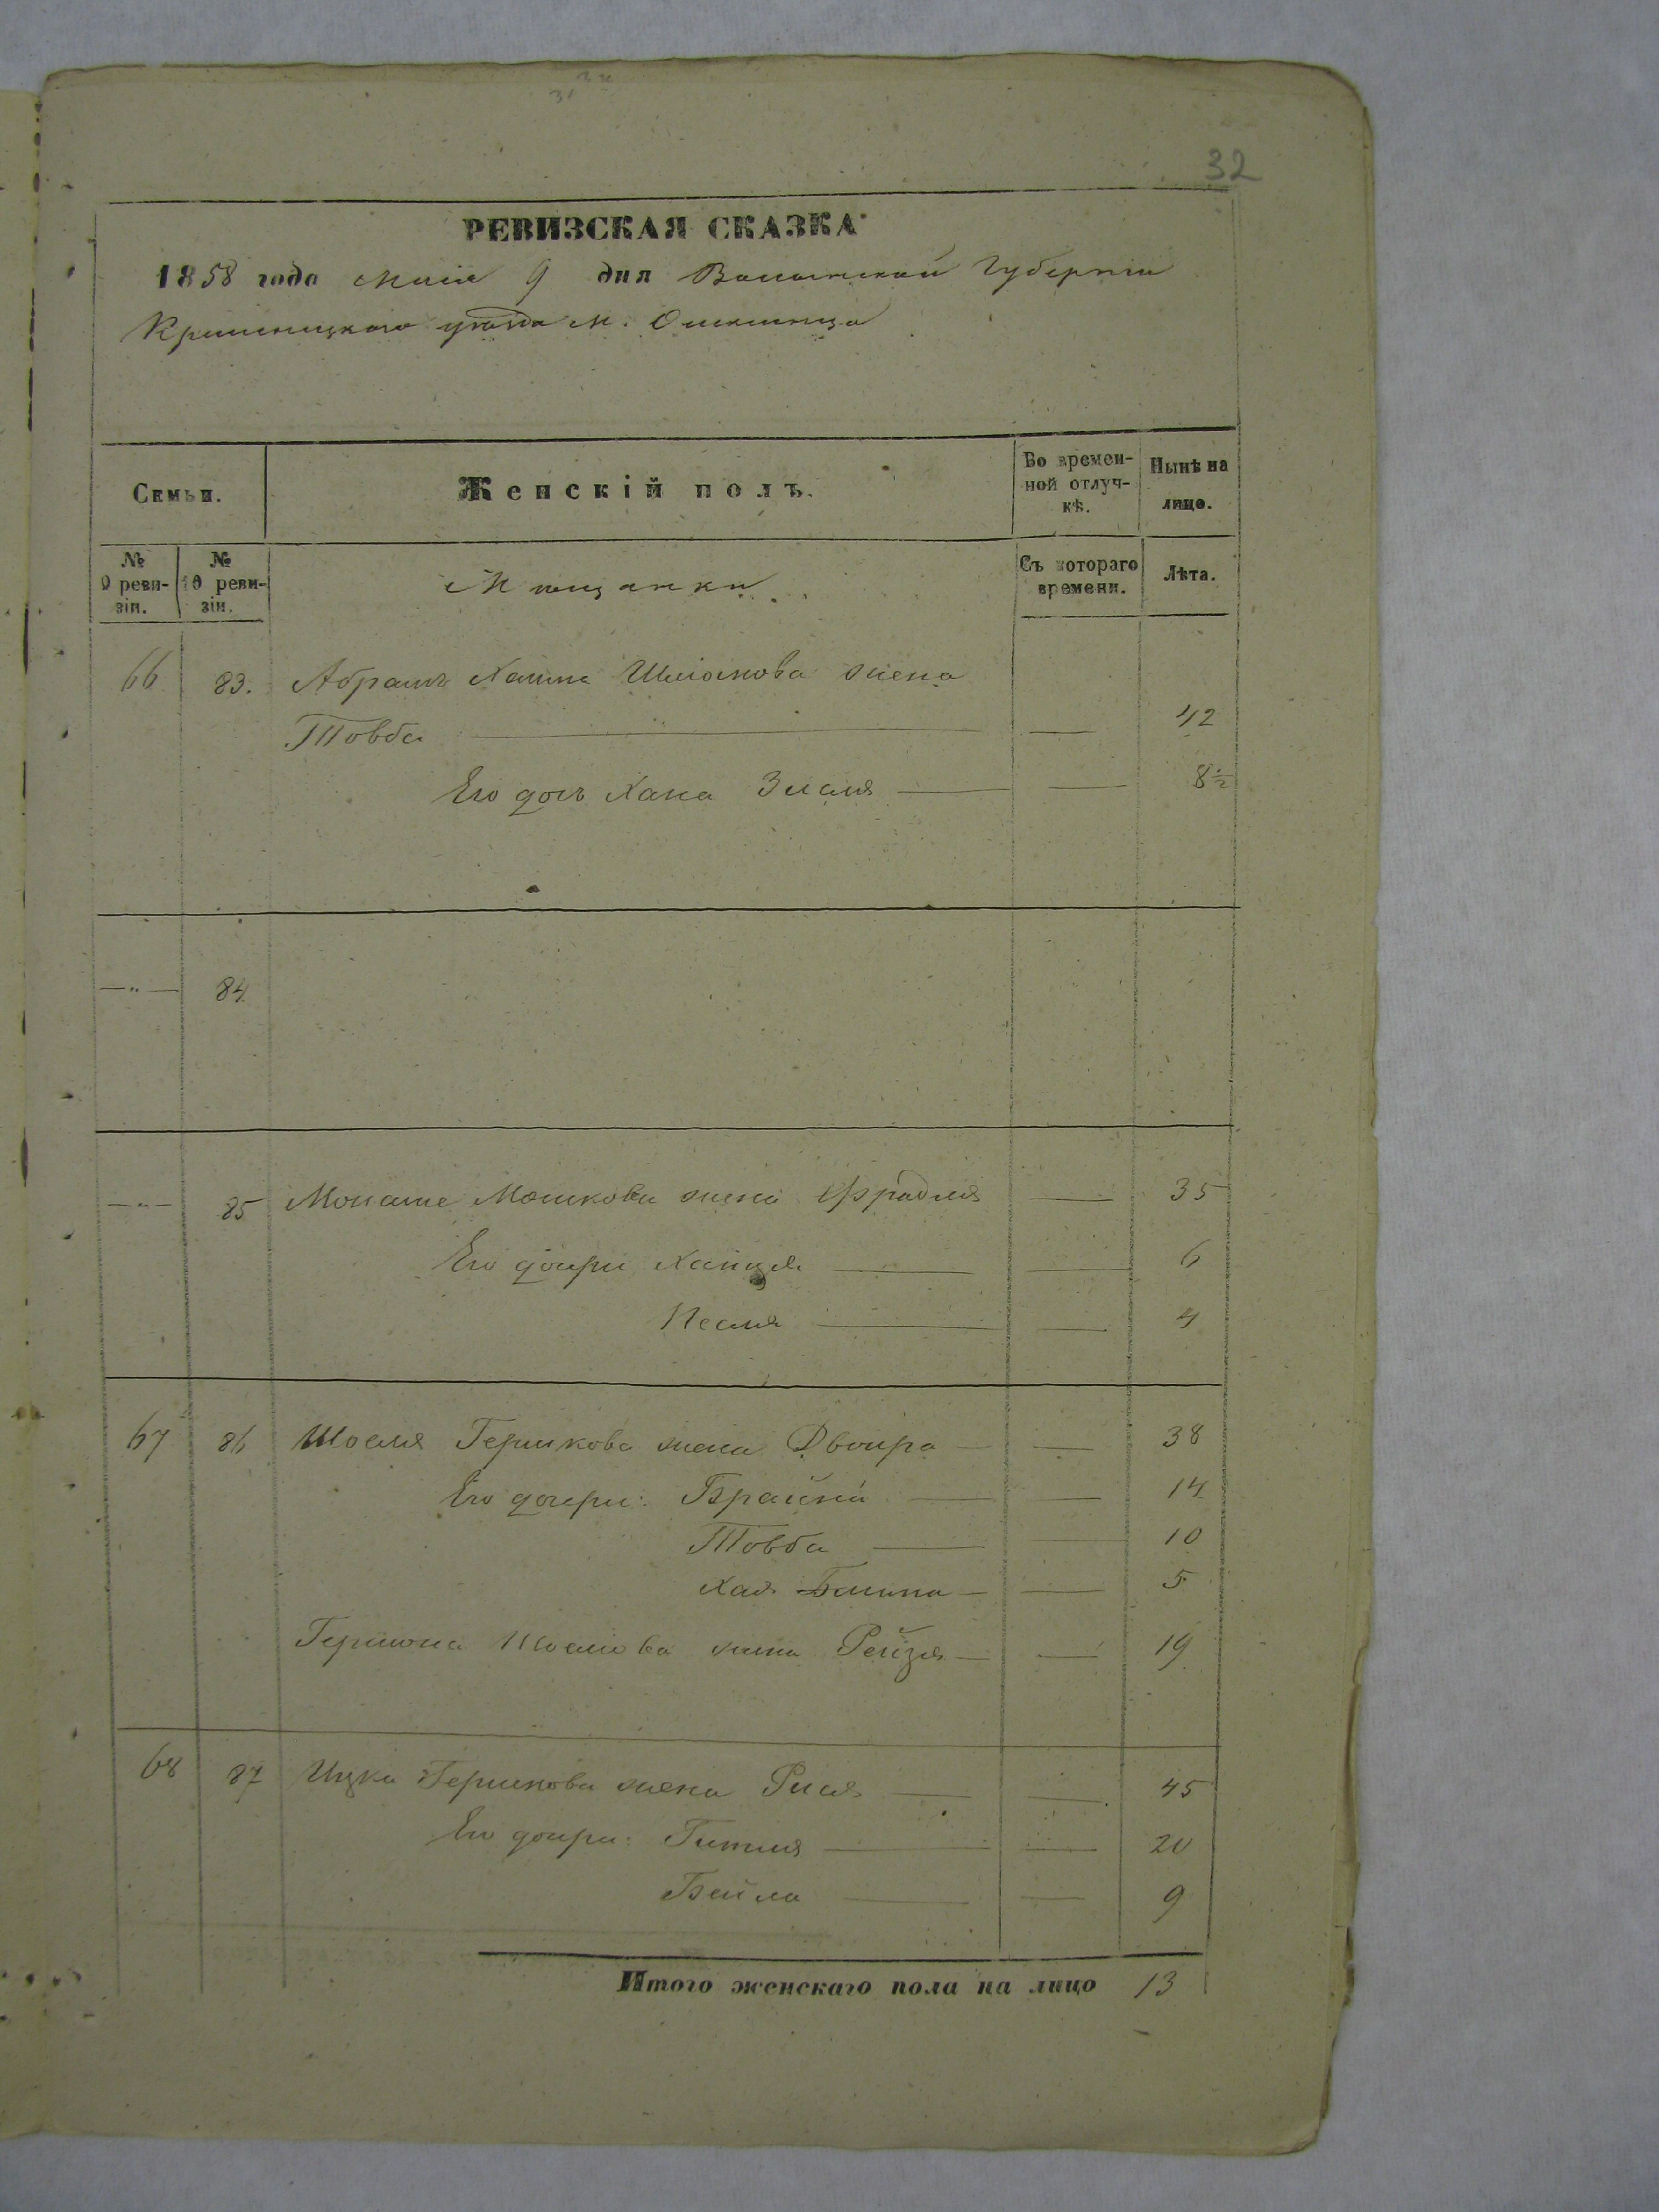 32
РЕВИЗСКАЯ СКАЗКА
1858 года Мая 9 дня Волынской Губерніи
Кременецкаго уѣзда м.
Семьи. Женскій полъ. Во времен- Нынѣ на
ной отлуч- лицо.
кѣ.
№ № Мѣщанки Съ котораго Лѣта.
9 реви- 10 реви- времени.
зіи. зіи.
66 83. Абрамъ Хаима Шліомова жена
Товба — — 42
Его дочь Хана Злата — — 8½
—„— 84
—„— 85 Монаше Мошкова жена Фрадля — 35
Его дочери Хайця — — 6
Песля — — 4
67 86 Шоеля Гершкова жена Двойра — — 38
Его дочери: Брайна — — 14
Товба — — 10
Хая — — 5
Гершона Шоелева жена Рейзя — — 19
68 87 Ицка Гершкова жена Рися — — 45
Его дочери: Гитля — — 20
Бейла — — 9
Итого женскаго пола на лицо 13